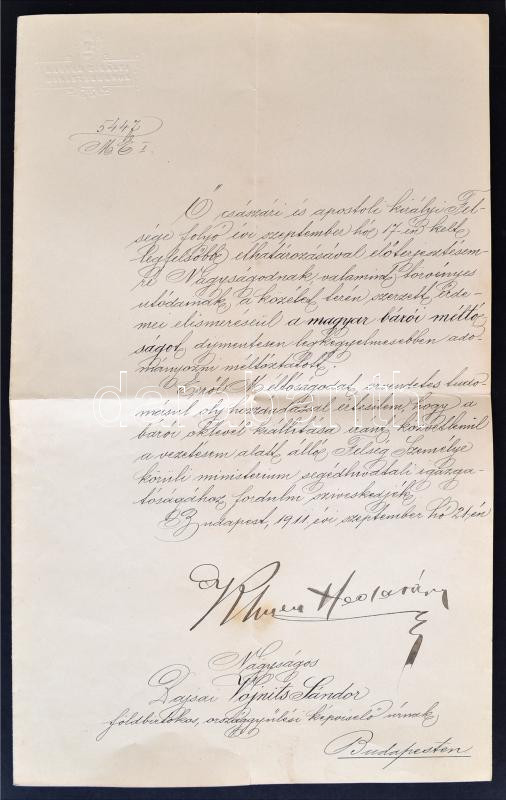 5447
M.E. I.
Ő császári és apostoli királyi Fel-
sége folyó évi szeptember hó 17-én kelt
legfelsőbb elhatározásával előterjesztésem-
re Nagyságodnak, valamint törvényes
utódainak, a közélet terén szerzett érde-
mei elismeréseül a magyar bárói méltó-
ságot díjmentesen legkegyelmesebben ado-
mányozni méltóztatott.
Erről Méltóságodat örvendetes tudo-
másul oly hozzáadással értesítem, hogy a
bárói oklevél kiállítása iránt közvetlenül
a vezetésem alatt álló Felség Személye
körüli ministerium segédhivatali igazga-
tóságához fordulni szíveskedjék.
Budapest, 1911. évi szeptember hó 21-én
Khuen Héderváry
Nagyságos
Bajsai Vojnits Sándor
földbirtokos, országgyűlési képviselő úrnak
Budapesten
darabanth